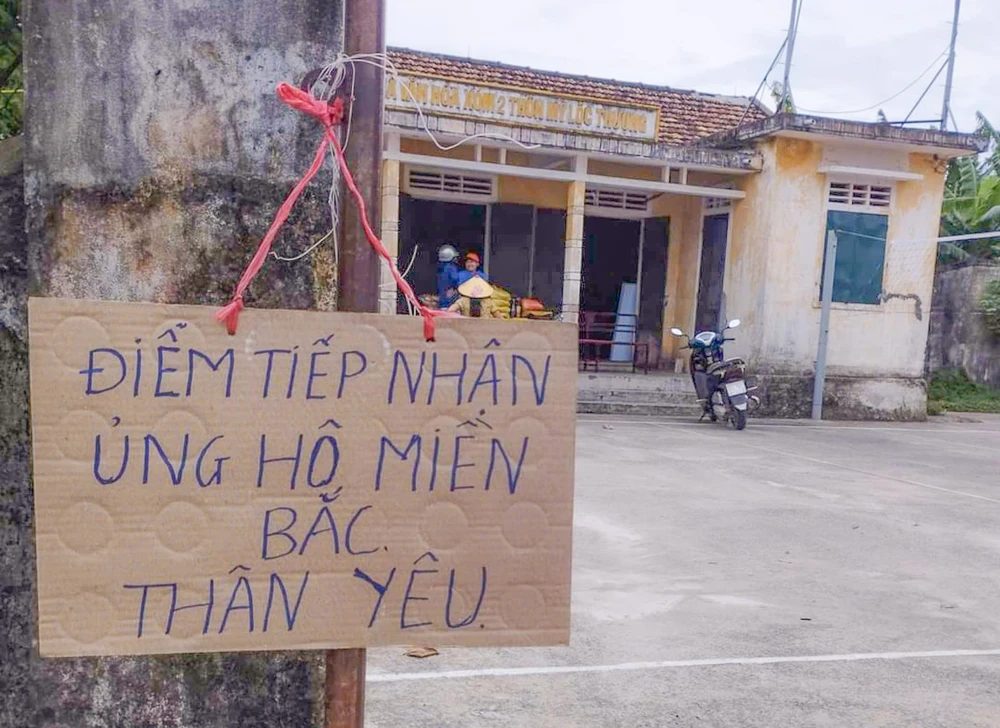 VĂN HÓA XÓM 2 THÔN MỸ LỘC THƯỢNG
ĐIỂM TIẾP NHẬN
ỦNG HỘ MIỀN
BẮC.
THÂN YÊU.